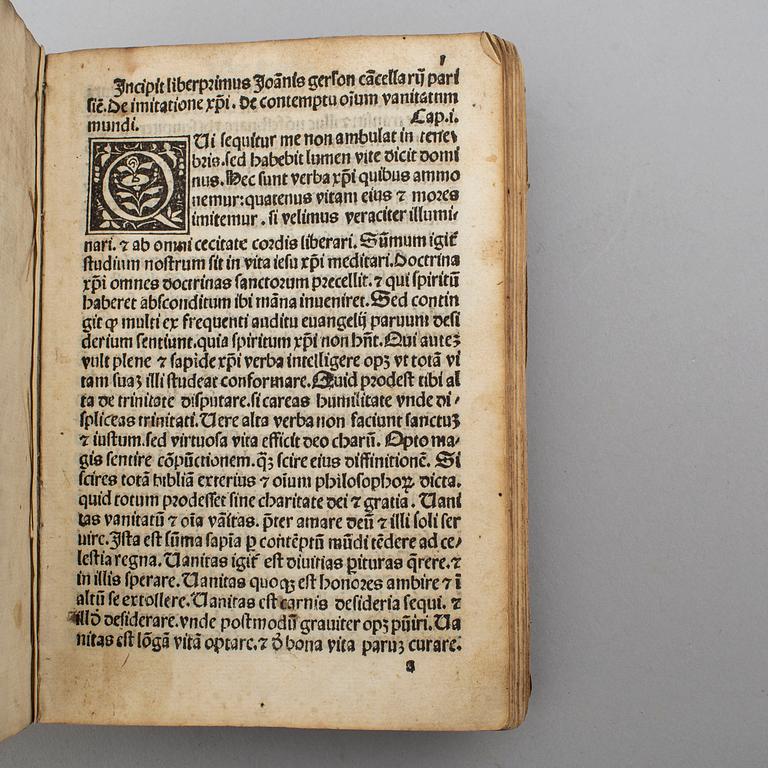 1
Incipit liber primus Joānis gerson cācellarij pari
siē. De imitatione xp̄i. de contemptu oīum vanitatum
mundi. Cap.i.
QUi sequitur me non ambulat in tene⸗
bris. sed habebit lumen vite dicit domi
nus. Hec sunt verba xp̄i quibus ammo
nemur: quatenus vitam eius ⁊ mores
imitemur. si velimus veraciter illumi⸗
nari. ⁊ ab omni cecitate cordis liberari. Sūmum igit̄
studium nostrum sit in vita iesu xp̄i meditari. Doctrina
xp̄i omnes doctrinas sanctorum precellit. ⁊ qui spiritū
haberet absconditum ibi māna inueniret. Sed contin
git ꝙ multi ex frequenti auditu euangelij paruum desi
derium sentiunt. quia spiritum xp̄i non hn̄t. Qui auteꝫ
vult plene ⁊ sapide xp̄i verba intelligere opꝫ vt totā vi
tam suaꝫ illi studeat conformare. Quid prodest tibi al
ta de trinitate disputare. si careas humilitate vnde di⸗
spliceas trinitati. Uere alta verba non faciunt sanctuꝫ
⁊ iustum. sed virtuosa vita efficit deo charū. Opto ma⸗
gis sentire cōpūctionem. q̄ꝫ scire eius diffinitionē. Si
scires totā bibliā exterius ⁊ oīum philosophoꝝ dicta.
quid totum prodesset sine charitate dei ⁊ gratia. Uani
tas vanitatū ⁊ oīa vāitas. p̄ter amare deū ⁊ illi soli ser
uire. Ista est sūma sapīa ꝑ contēptū mūdi tēdere ad ce⸗
lestia regna. Uanitas igit̄ est diuitias ꝑituras q̄rere. ⁊
in illis sperare. Uanitas quoqꝫ est honores ambire ⁊ ī
altū se extollere. Uanitas est carnis desideria sequi. ⁊
illd̄ desiderare. vnde postmodū grauiter opꝫ pūiri. Ua
nitas est lōgā vitā optare. ⁊ d̄ bona vita paruꝫ curare.
a